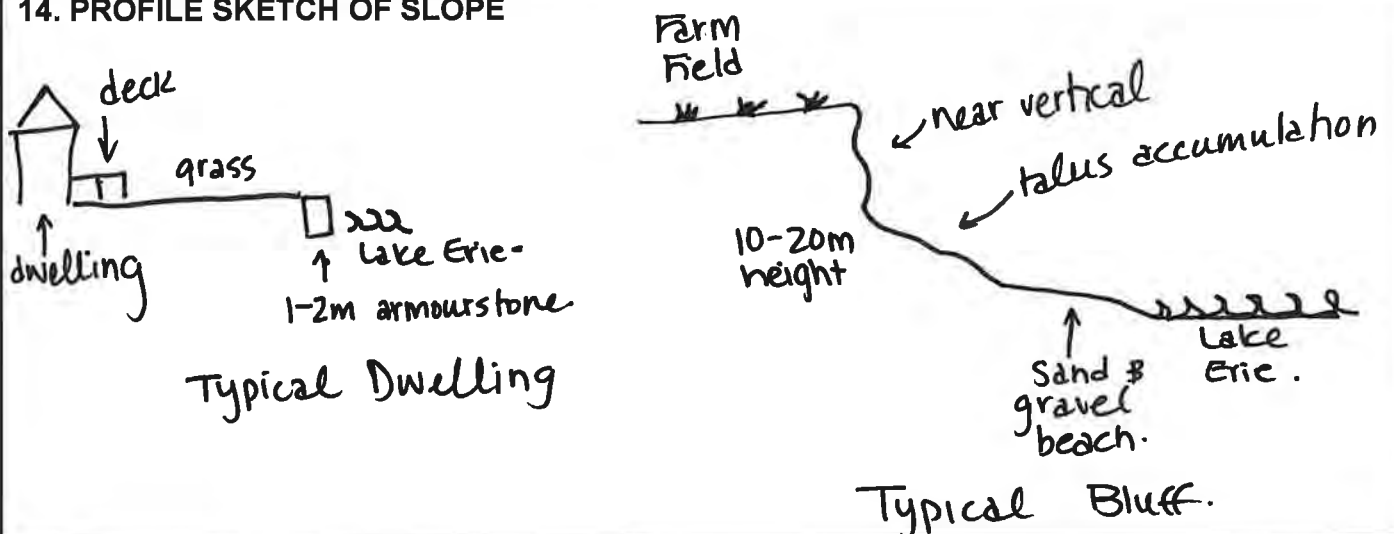 14. PROFILE SKETCH OF SLOPE
deck
grass
dwelling
Lake Erie-
1-2m armourstone
Typical Dwelling
Farm
Field
near vertical
talus accumulation
10-20m
height
Sand &
gravel
beach.
Lake
Erie.
Typical Bluff.